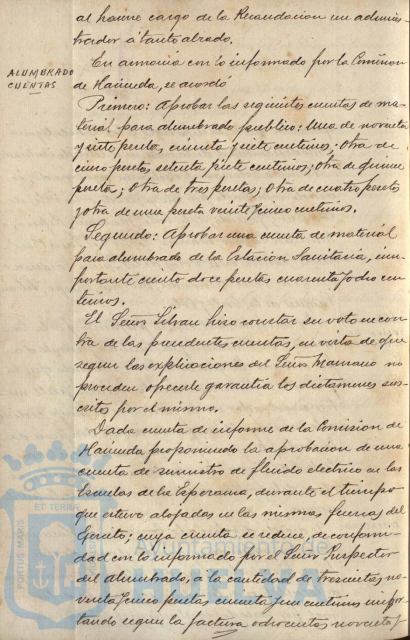 al hacerse cargo de la Recaudacion un adminis
trador á tanto alzado.
En armonia con lo informado por la Comision
ALUMBRADO
CUENTAS
de Hacienda, se acordó
Primero: Aprobar las siguientes cuentas de ma-
terial para alumbrado público: Una de noventa
y siete pesetas, cincuenta y siete centimos; Otra de
cinco pesetas, setenta y siete centimos; Otra de quince
pesetas; Otra de tres pesetas; Otra de cuatro pesetas
y otra de una peseta veinte y cinco centimos.
Segundo: Aprobar una cuenta de material
para alumbrado de la Estacion Sanitaria, im-
portante ciento doce pesetas cuarenta y ocho cen-
timos.
El Señor Silvan hizo constar su voto en con
tra de las precedentes cuentas, en vista de que
segun las explicaciones del Señor no
pueden ofrecerle garantía los dictamenes sus-
critos por el mismo.
Dada cuenta de informe de la Comision de
Hacienda proponiendo la aprobacion de una
cuenta de suministro de fluido electrico en las
Escuelas de la Esperanza, durante el tiempo
que estuvo alojadas en las mismas fuerzas del
Ejército; cuya cuenta se reduce, de conformi-
dad con lo informado por el Señor Inspector
del alumbrado, a la cantidad de trescientas no-
venta y cinco pesetas cuarenta y centimos impor
tando segun la factura ochocientas noventa y
PORTUS MARIS
ET TERRAE
HUELVA